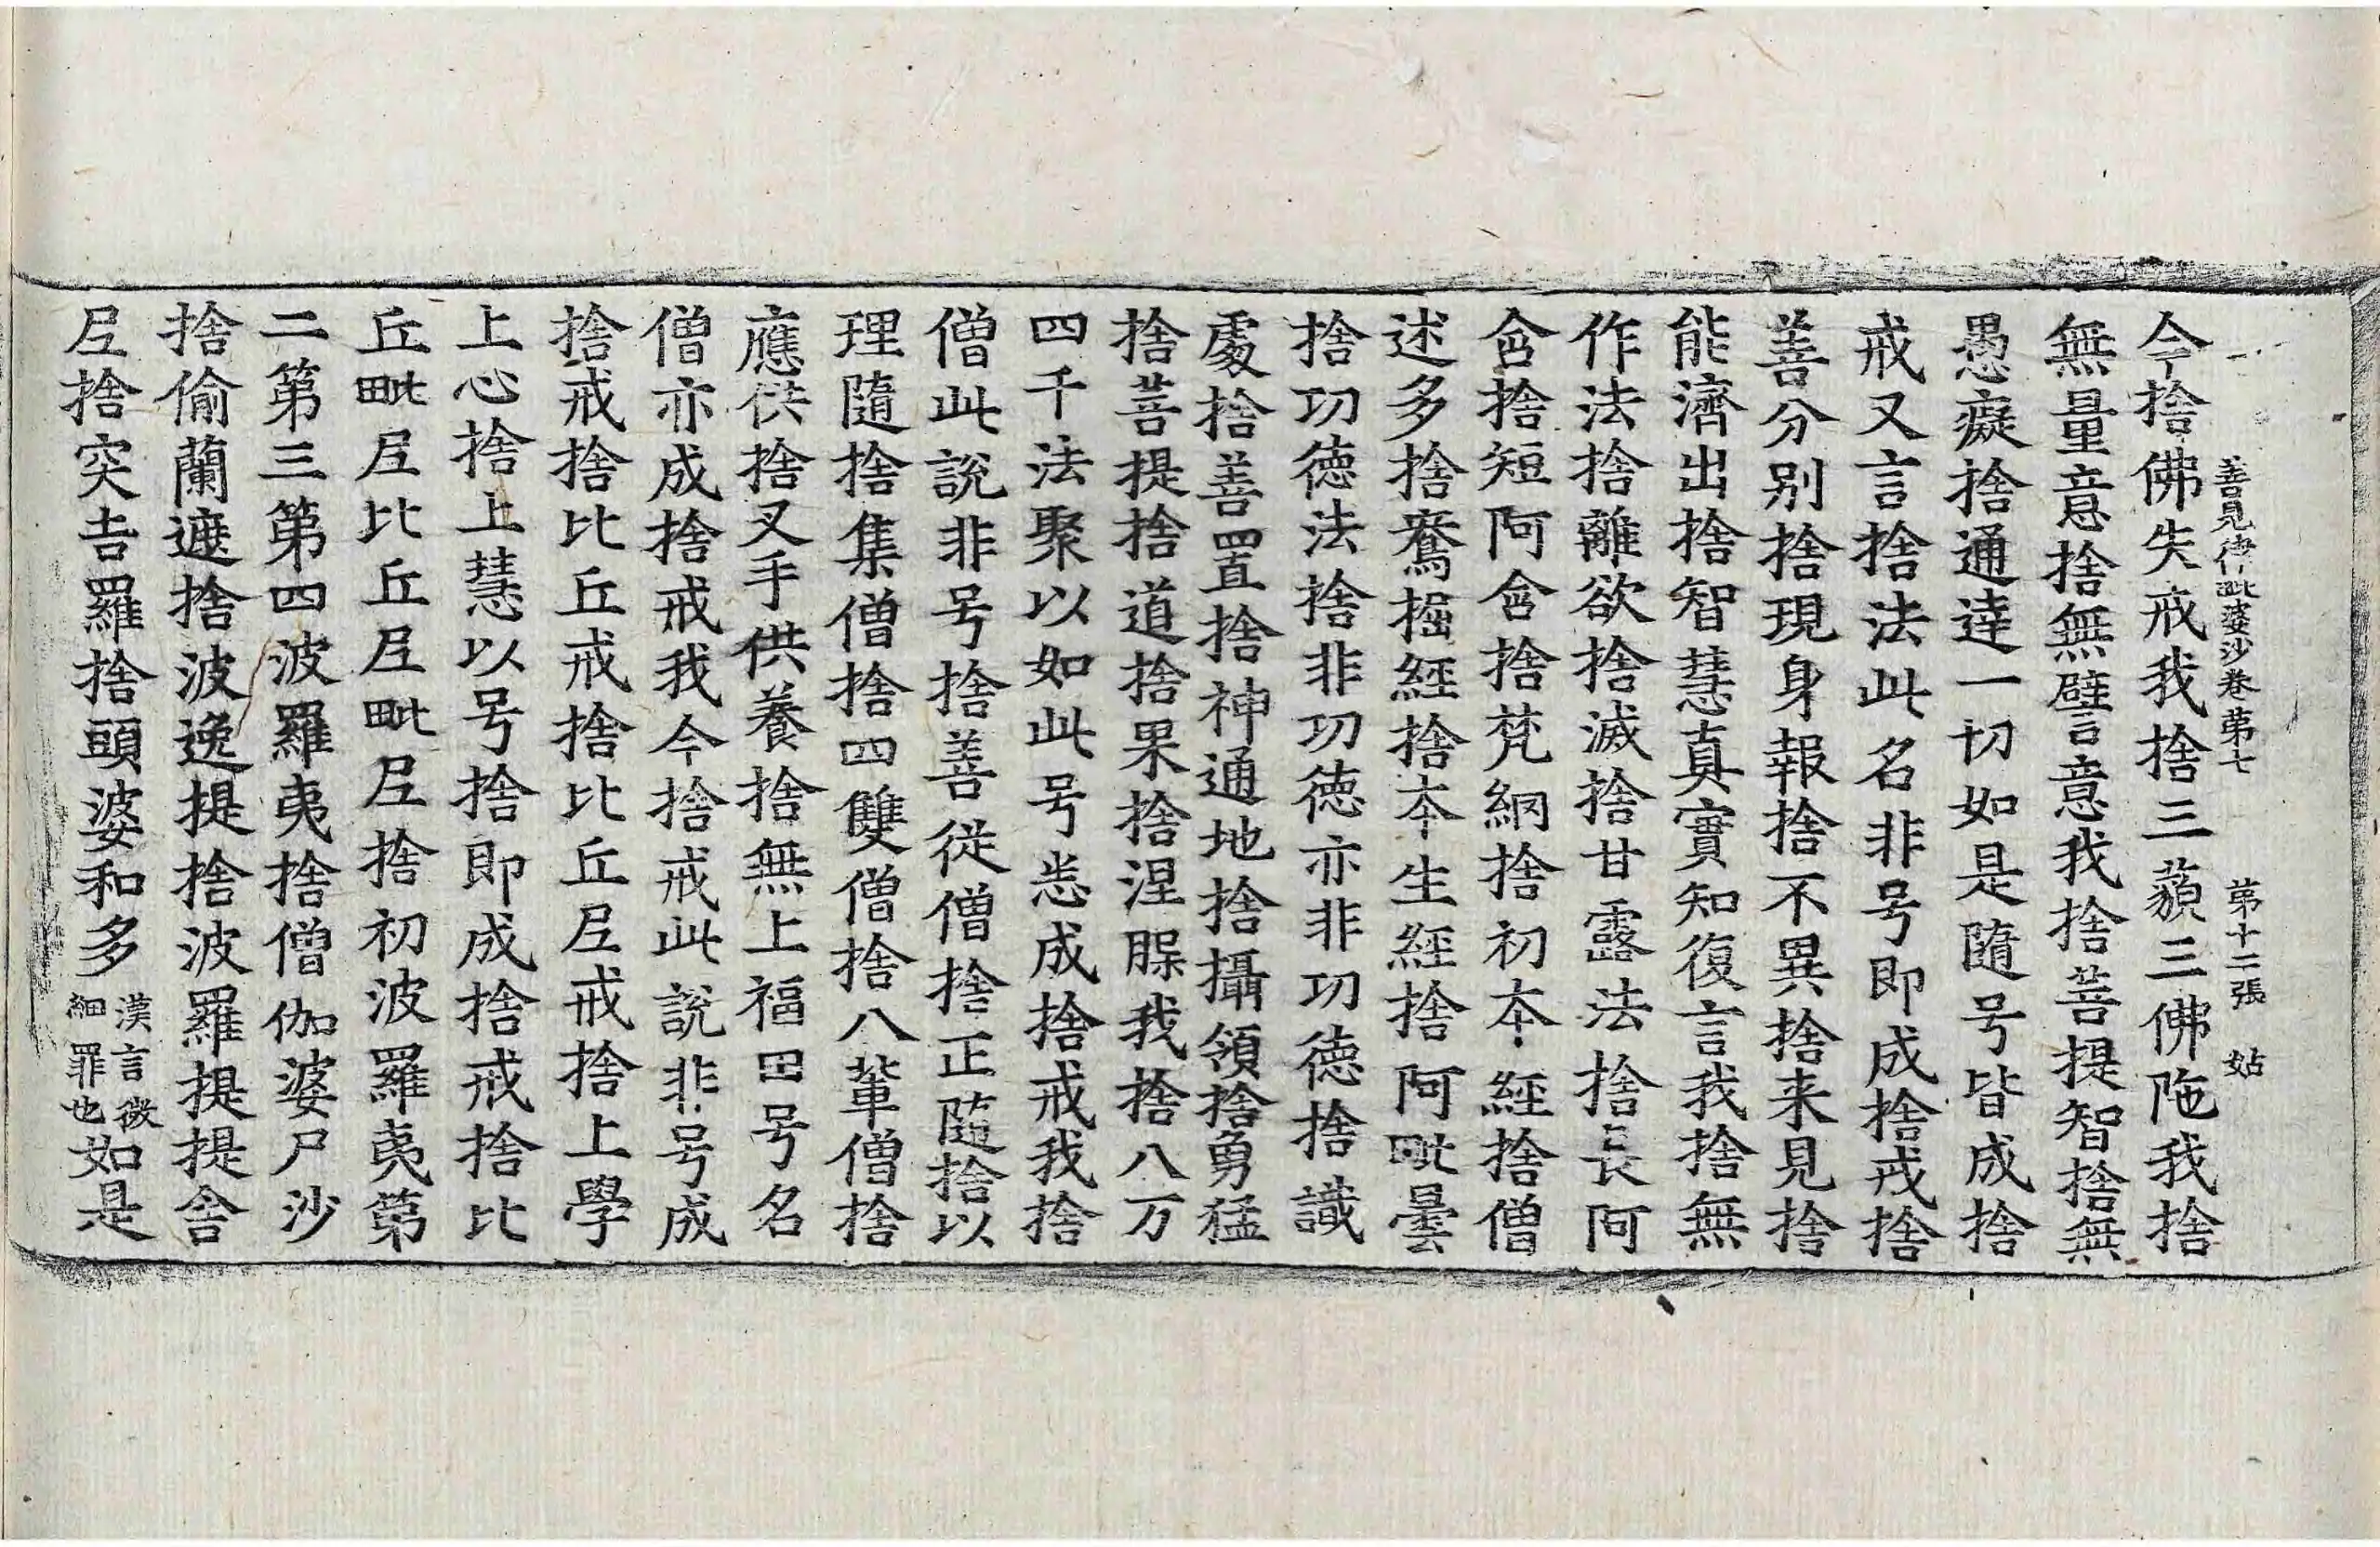 善見律毗婆沙卷第七　第十二張　姑
今捨佛失戒我捨三藐三佛陁我捨
無量意捨無譬言意我捨菩提智捨無
愚癡捨通達一切如是隨号皆成捨
戒又言捨法此名非号即成捨戒捨
善分别捨現身報捨不異捨来見捨
能濟出捨智慧真實知復言我捨無
作法捨離欲捨滅捨甘露法捨長阿
含捨短阿含捨梵網捨初本經捨僧
述多捨鴦掘經捨本生經捨阿毗曇
捨功德法捨非功德亦非功德捨識
處捨善置捨神通地捨攝領捨勇猛
捨菩提捨道捨果捨涅脲我捨八万
四千法聚以如此号悉成捨戒我捨
僧此說非号捨善從僧捨正隨捨以
理隨捨集僧捨四雙僧捨八輩僧捨
應供捨叉手供養捨無上福田号名
僧亦成捨戒我今捨戒此說非号成
捨戒捨比丘戒捨比丘𡰱戒捨上學
上心捨上慧以号捨即成捨戒捨比
丘毗𡰱比丘𡰱毗𡰱捨初波羅夷第
二第三第四波羅夷捨僧伽婆尸沙
捨偷蘭遮捨波逸提捨波羅提提舍
𡰱捨突吉羅捨頭婆和多漢言微細罪也如是